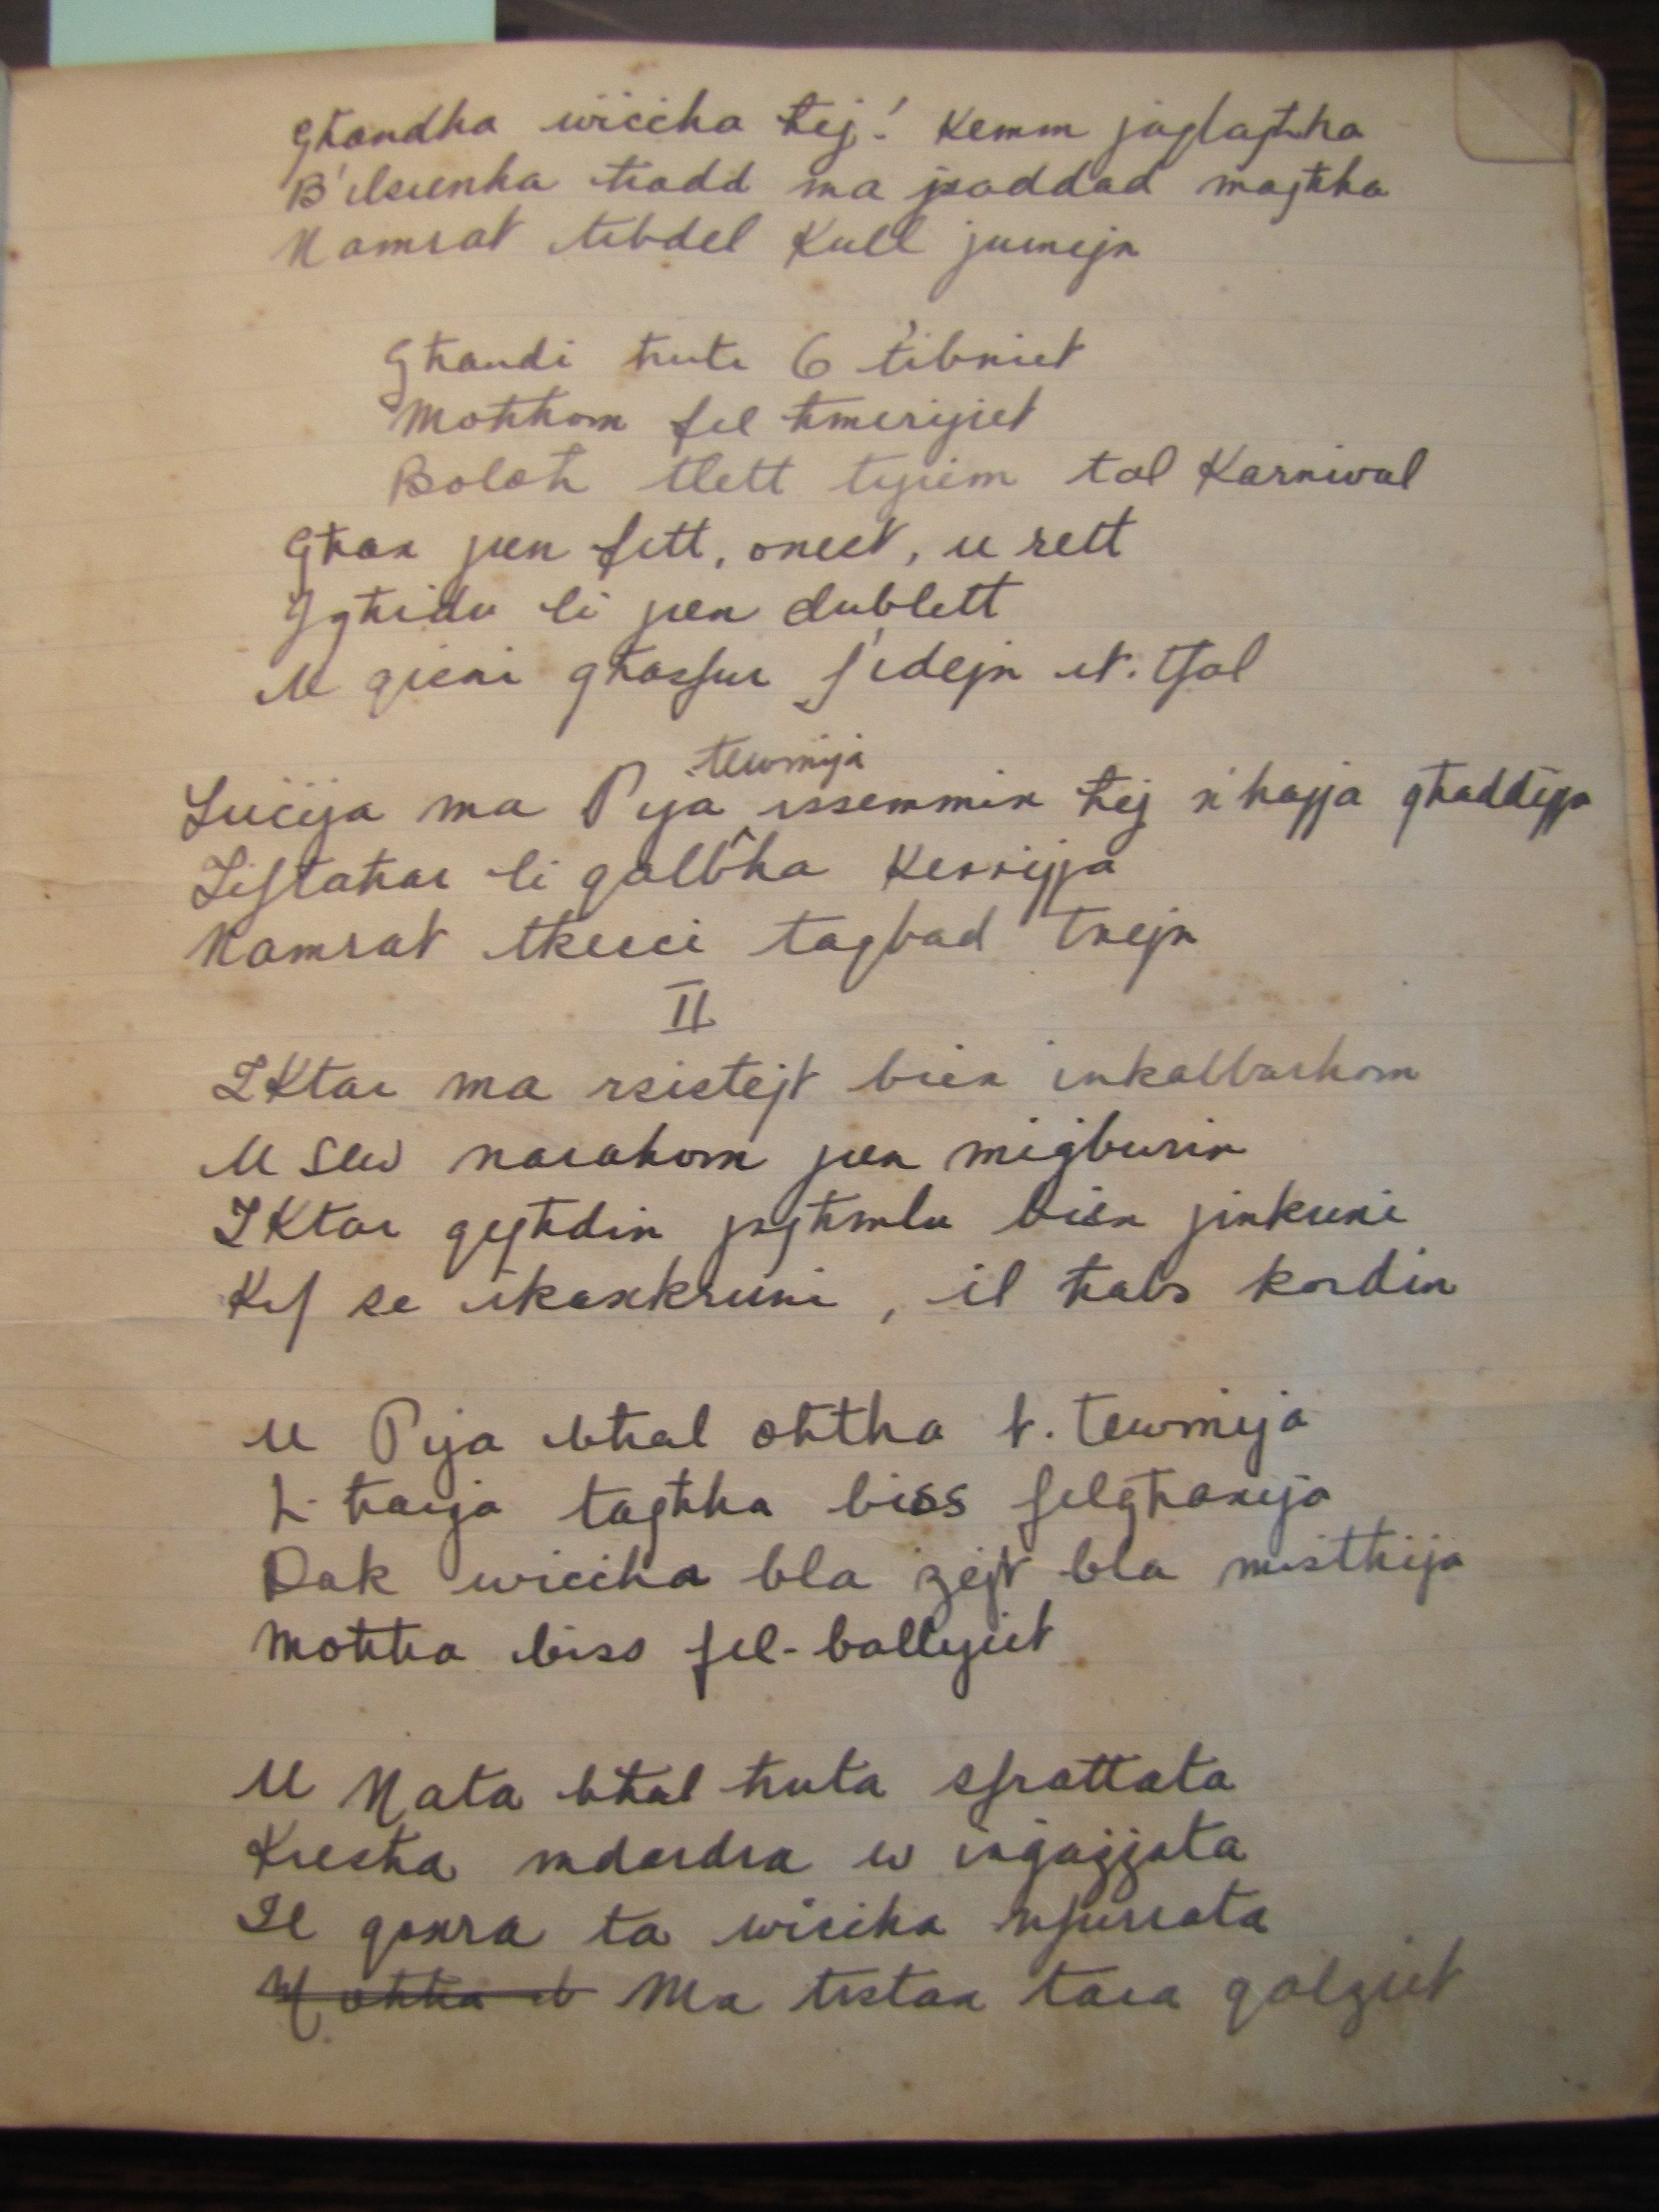 Għandha wiċċha ħej! Kemm jagħlagħha
B'ilsienha ħadd ma jsoddad magħha
Namrat tibdel Kull jumejn
Għandi ħuti 6 tibniet
Moħħom fil ħmerijiet
Boloħ tlett ijiem tal Karnival
Għax jien fitt, onest, u rett
Jgħidu li jien dublett
U qieni għasfur f'idejn it. tfal
tewmija
Luċija ma Pija issemmix ħej n'hajja għaddejja
Tiftaħar li qalbha Kerrijja
Namrat tkeċċi taqbad tnejn
II
Iktar ma rsistejt biex inkabbarhom
U sew narahom jien miġburin
Iktar qegħdin jagħmlu biex jinkuni
Kif se ikaxkruni, il ħabs kordin
U Pija bħal oħtha t. tewmija
L- ħarġa tagħha biss filgħaxija
Dak wiċċha bla żejt bla mistħija
Moħħa biss fil-ballijiet
U Nata bħal ħuta sfrattata
Kiesħa mdardra w inġazzata
Il qoxra ta wiċċha nfurrata
Ma tistax tara qalziet